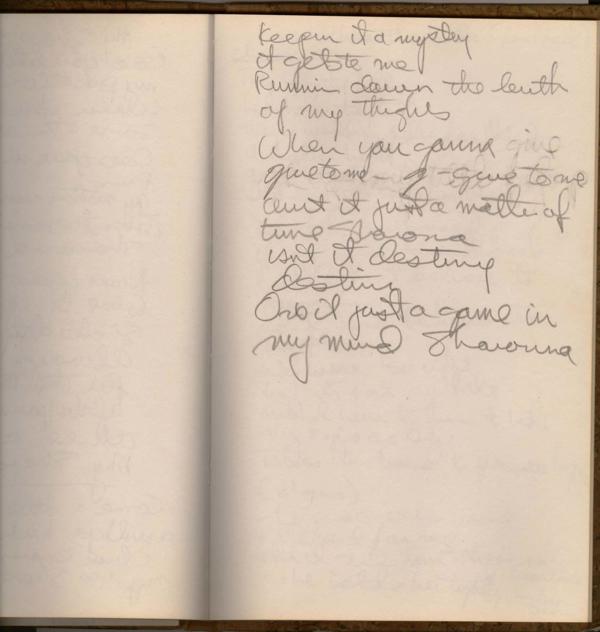 Keepin it a mystery
it gets to me
Runnin down the lenth
of my thighs
When you gonna give
give to me - g - give to me
isnt it just a matter of
time Sharona
isnt it destiny
destiny
Or is it just a game in
my mind Sharonna